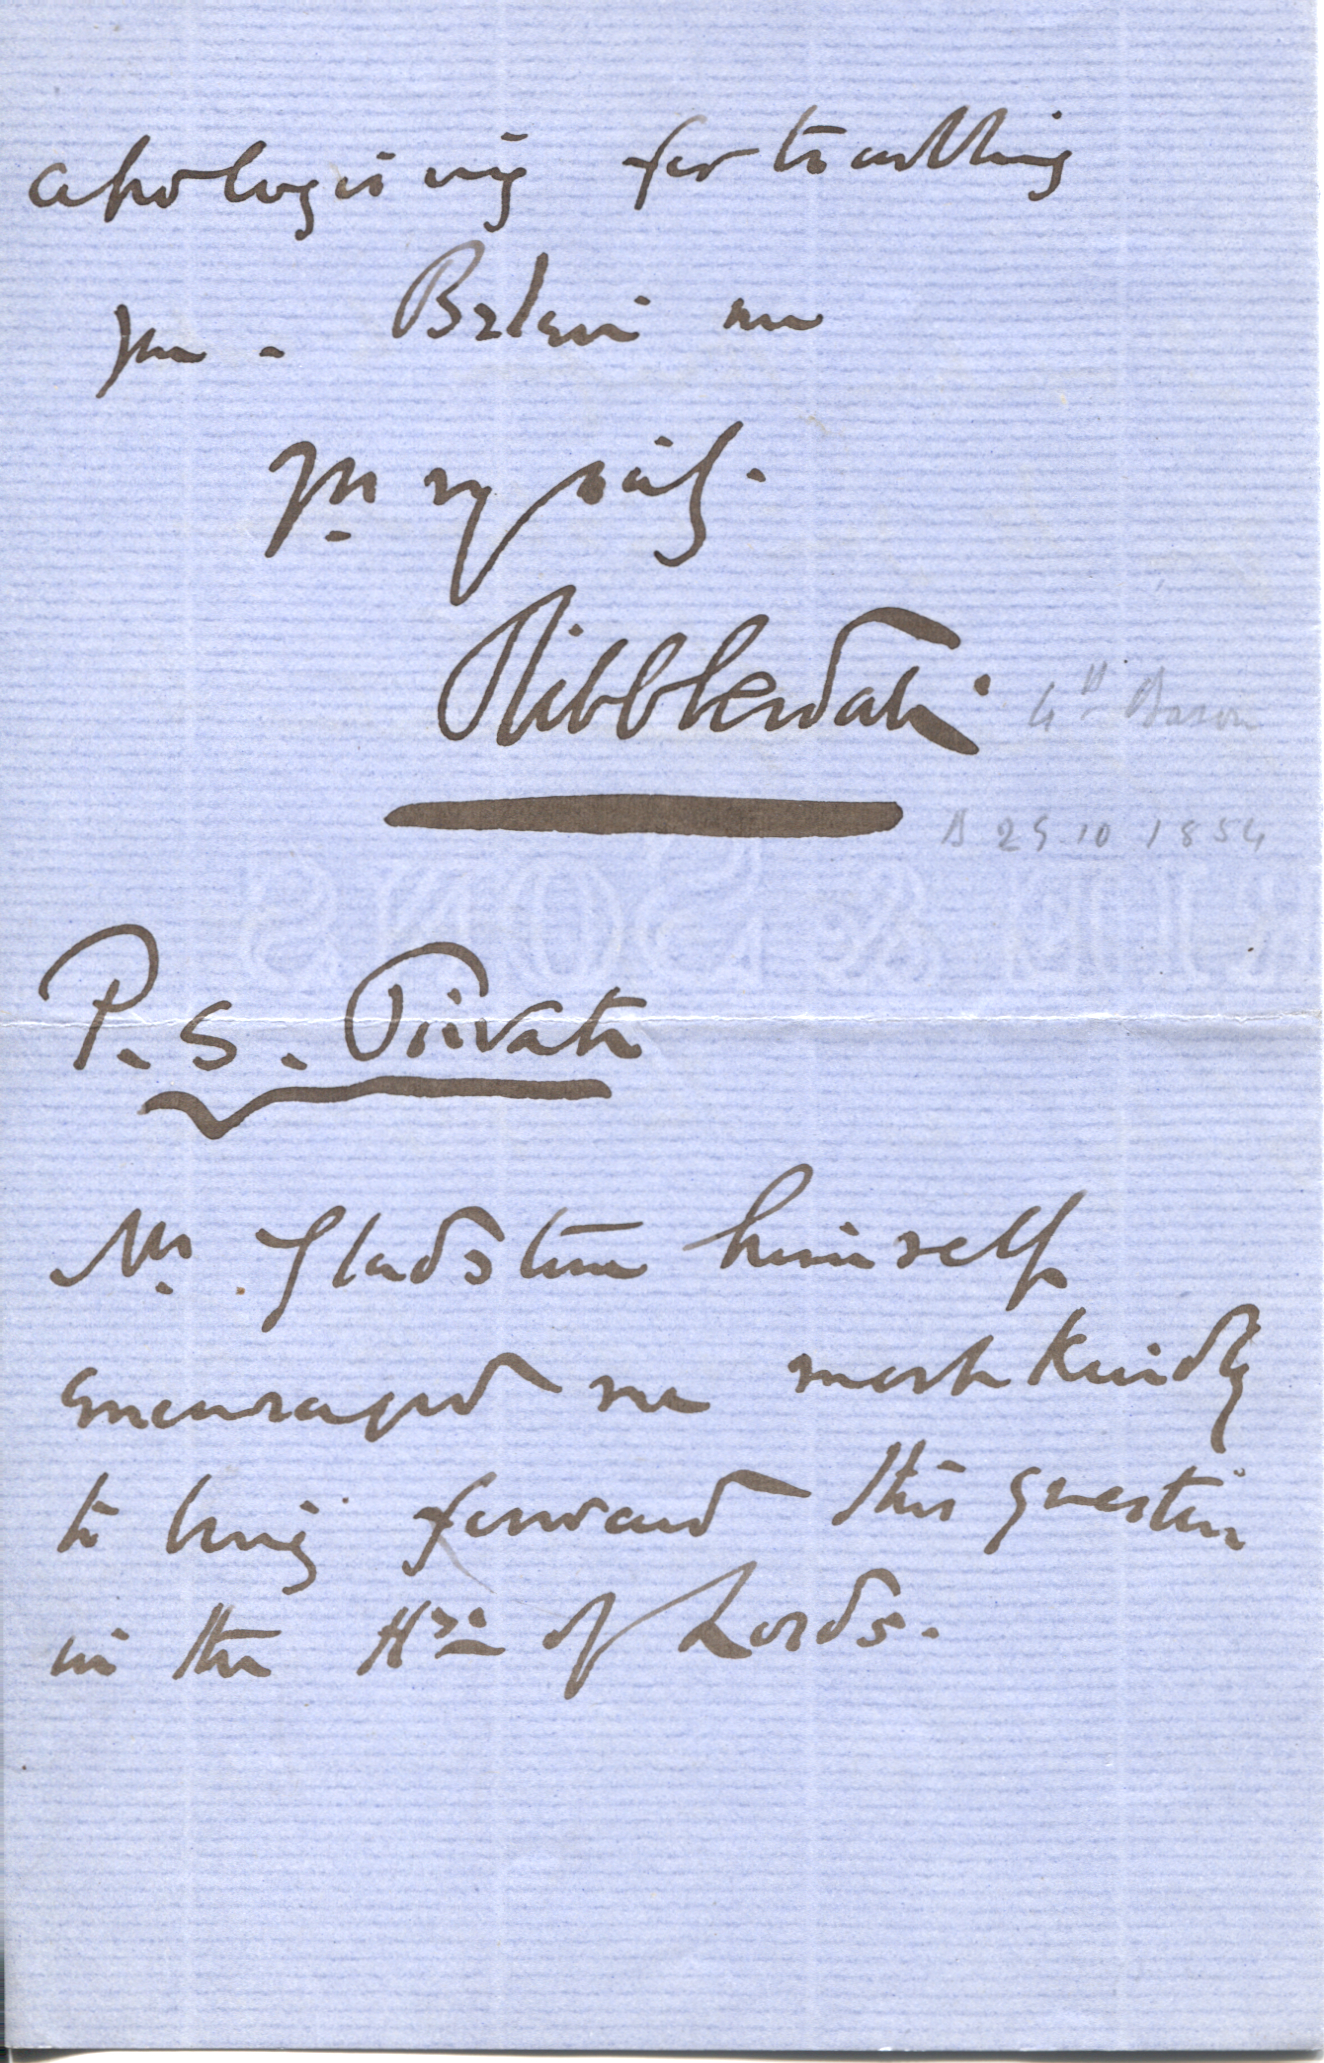 apologising for troubling
you. Believe me
Yrs vy faithf.
Ribblesdale. 4th Baron
B 29.10 1854
& SONS
P.S. Private
Mr. Gladstone himself
encouraged me most kindly
to bring forward this question
in the Hse of Lords.